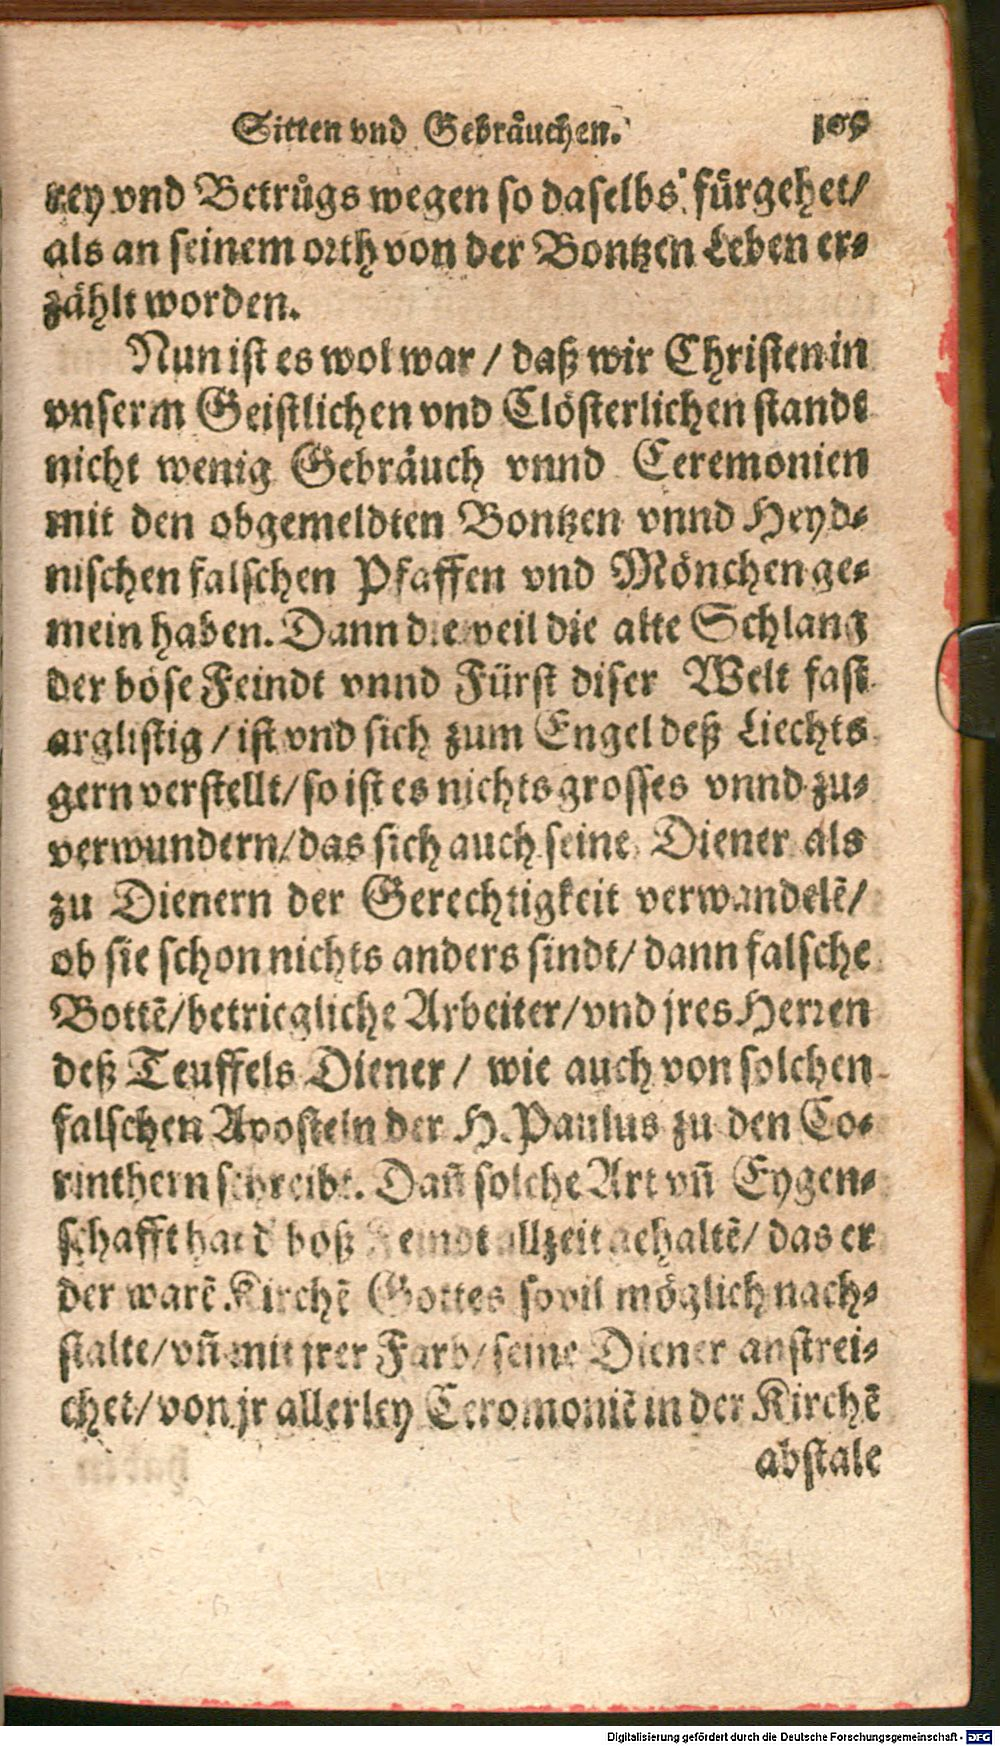 Sitten vnd Gebräuchen. 109
rey vnd Betrůgs wegen so daselbs fürgehet/
als an seinem orth von der Bontzen Leben er-
zählt worden.
Nun ist es wol war / daß wir Christen in
vnserm Geistlichen vnd Clösterlichen stande
nicht wenig Gebräuch vnnd Ceremonien
mit den obgemeldten Bontzen vnnd Heyd-
nischen falschen Pfaffen vnd Mönchen ge-
mein haben. Dann dieweil die alte Schlang
der böse Feindt vnnd Fürst diser Welt fast
arglistig / ist vnd sich zum Engel deß Liechts
gern verstellt/ so ist es nichts grosses vnnd zu-
verwundern/ das sich auch seine Diener als
zu Dienern der Gerechtigkeit verwandelē/
ob sie schon nichts anders sindt/ dann falsche
Bottē/ betriegliche Arbeiter/ vnd jres Herren
deß Teuffels Diener / wie auch von solchen
falschen Aposteln der H. Paulus zu den Co-
rinthern schreibt. Dañ solche Art vñ Eygen-
schafft hat d böß Feindt allzeit gehaltē/ das er
der warē Kirchē Gottes sovil möglich nach-
stalte/ vñ mit jrer Farb/ seine Diener anstrei-
chet/ von jr allerley Ceromoniē in der Kirchē
abstale
Digitalisierung gefördert durch die Deutsche Forschungsgemeinschaft - DFG